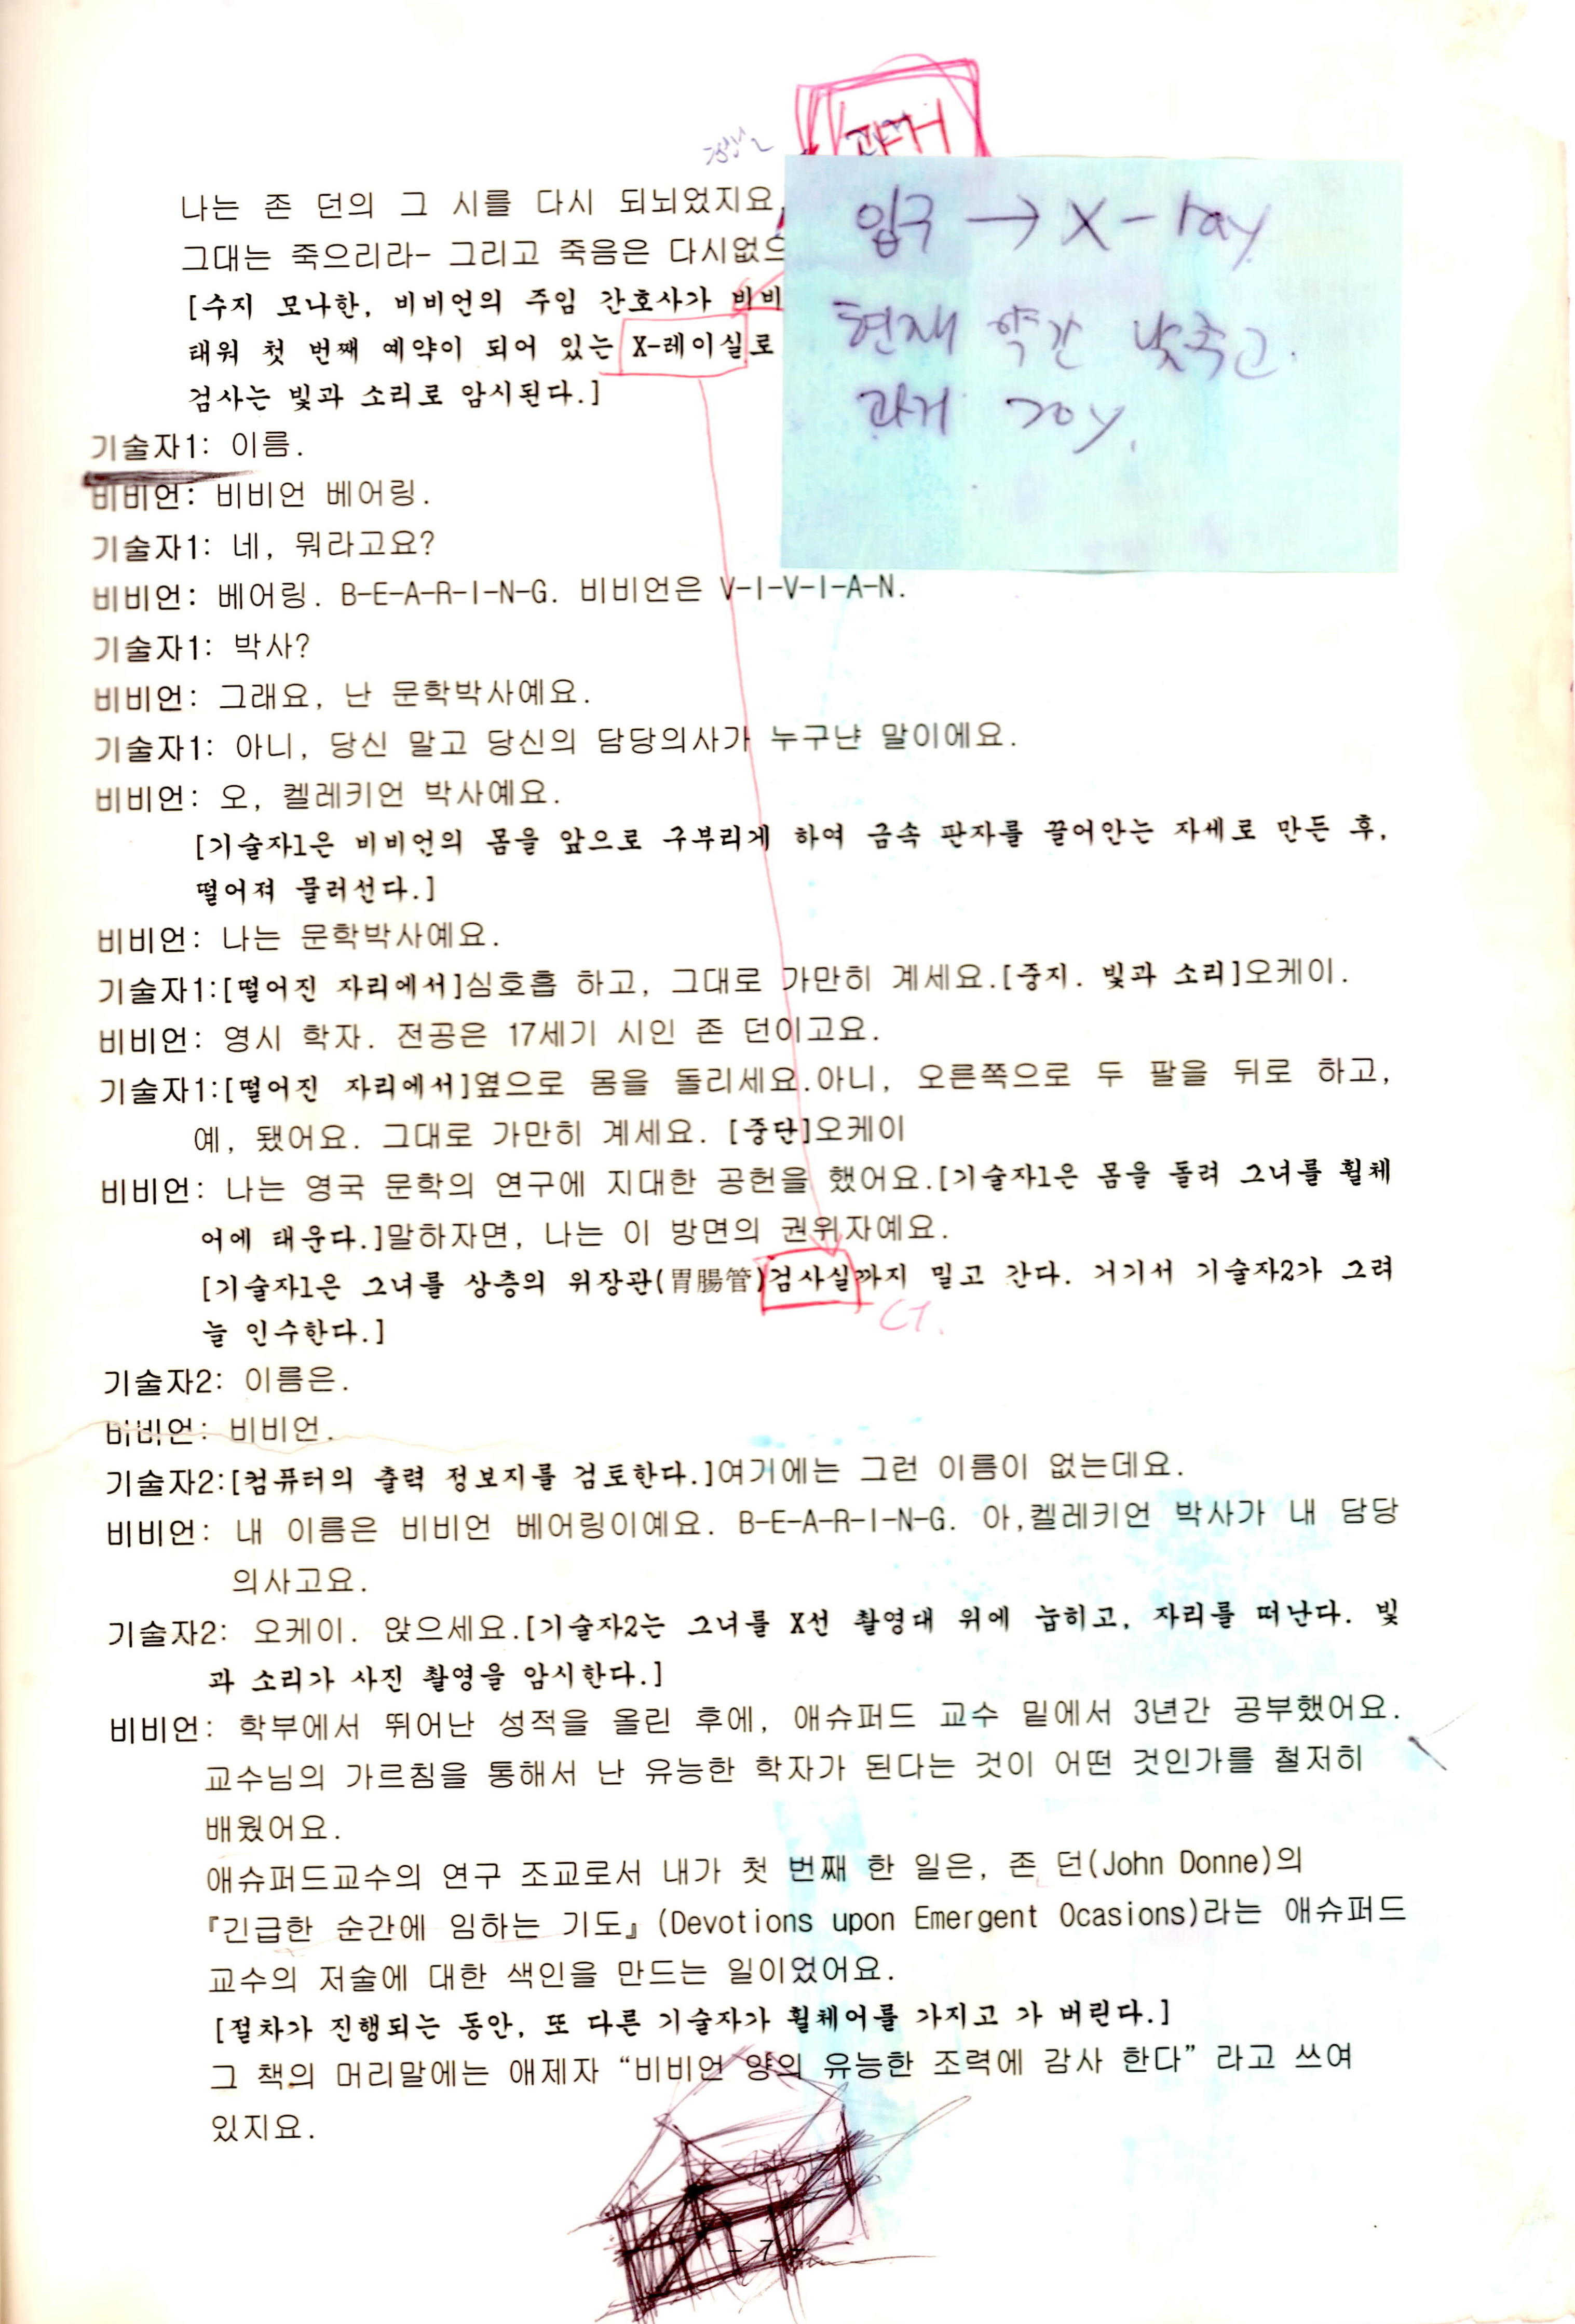 과거
입구 → X-ray
현재 약간 낮추고.
과거
나는 존 던의 그 시를 다시 되뇌었지요,
그대는 죽으리라- 그리고 죽음은 다시없으
[수지 모나한, 비비언의 주임 간호사가 비비
태워 첫 번째 예약이 되어 있는 X-레이실로
검사는 빛과 소리로 암시된다.]
기술자1: 이름.
비비언: 비비언 베어링.
기술자1: 네, 뭐라고요?
비비언: 베어링. B-E-A-R-I-N-G. 비비언은 V-I-V-I-A-N.
기술자1: 박사?
비비언: 그래요, 난 문학박사예요.
기술자1: 아니, 당신 말고 당신의 담당의사가 누구냔 말이에요.
비비언: 오, 켈레키언 박사예요.
[기술자1은 비비언의 몸을 앞으로 구부리게 하여 금속 판자를 끌어안는 자세로 만든 후,
떨어져 물러선다.]
비비언: 나는 문학박사예요.
기술자1:[떨어진 자리에서]심호흡 하고, 그대로 가만히 계세요.[중지. 빛과 소리]오케이.
비비언: 영시 학자. 전공은 17세기 시인 존 던이고요.
기술자1:[떨어진 자리에서]옆으로 몸을 돌리세요.아니, 오른쪽으로 두 팔을 뒤로 하고,
예, 됐어요. 그대로 가만히 계세요. [중단]오케이
비비언: 나는 영국 문학의 연구에 지대한 공헌을 했어요.[기술자1은 몸을 돌려 그녀를 휠체
어에 태운다.]말하자면, 나는 이 방면의 권위자예요.
[기술자1은 그녀를 상층의 위장관(胃腸管)검사실까지 밀고 간다. 거기서 기술자2가 그려
늘 인수한다.]
CT.
기술자2: 이름은.
비비언: 비비언.
기술자2:[컴퓨터의 출력 정보지를 검토한다.]여기에는 그런 이름이 없는데요.
비비언: 내 이름은 비비언 베어링이예요. B-E-A-R-I-N-G. 아,켈레키언 박사가 내 담당
의사고요.
기술자2: 오케이. 앉으세요.[기술자2는 그녀를 X선 촬영대 위에 눕히고, 자리를 떠난다. 빛
과 소리가 사진 촬영을 암시한다.]
비비언: 학부에서 뛰어난 성적을 올린 후에, 애슈퍼드 교수 밑에서 3년간 공부했어요.
교수님의 가르침을 통해서 난 유능한 학자가 된다는 것이 어떤 것인가를 철저히
배웠어요.
애슈퍼드교수의 연구 조교로서 내가 첫 번째 한 일은, 존 던(John Donne)의
『긴급한 순간에 임하는 기도』(Devotions upon Emergent Ocasions)라는 애슈퍼드
교수의 저술에 대한 색인을 만드는 일이었어요.
[절차가 진행되는 동안, 또 다른 기술자가 휠체어를 가지고 가 버린다.]
그 책의 머리말에는 애제자 “비비언 양의 유능한 조력에 감사 한다” 라고 쓰여
있지요.
- 7 -